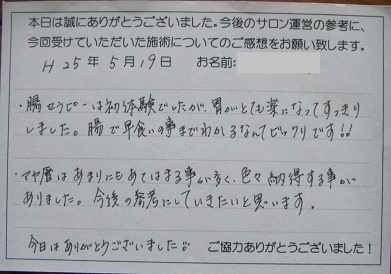 本日は誠にありがとうございました。今後のサロン運営の参考に、
今回受けていただいた施術についてのご感想をお願い致します。
H 25年 5月19日 お名前:
・腸セラピーは初体験でしたが、胃がとても楽になってすっきり
しました。腸で早食いの事までわかるなんてビックリです!!
・マヤ暦はあまりにもあてはまる事が多く、色々納得する事が
ありました。今後の参考にしていきたいと思います。
今日はありがとうございました。 ご協力ありがとうございました!